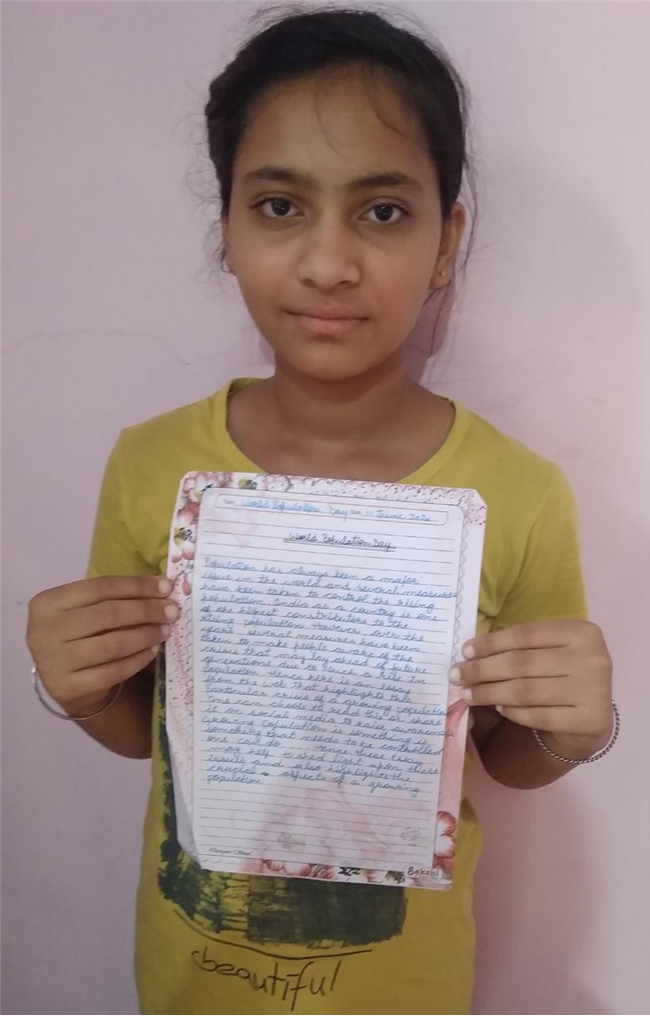 World Population Day Date 11 June 2020
World Population Day
Population has always been a major
issue in the world and several measures
have been taken to control the rising
population. India as a country is one
of the highest constributers to the
rising population. However over the
years several measures have been
taken to make people aware of the
crisis that may lay ahead of future
generations due to such a rise in
population. Hence here is an essay
from the web that highlights the
particular crises of a growing population
one can choose to read this or share
it on social media to raise awareness
Growing population is something
something that needs to be controlled
one can do. Hence these essay
may help to shed light upon these
issues and also highlights the
crucial aspects of a growing
population.
Sakshi
beautiful